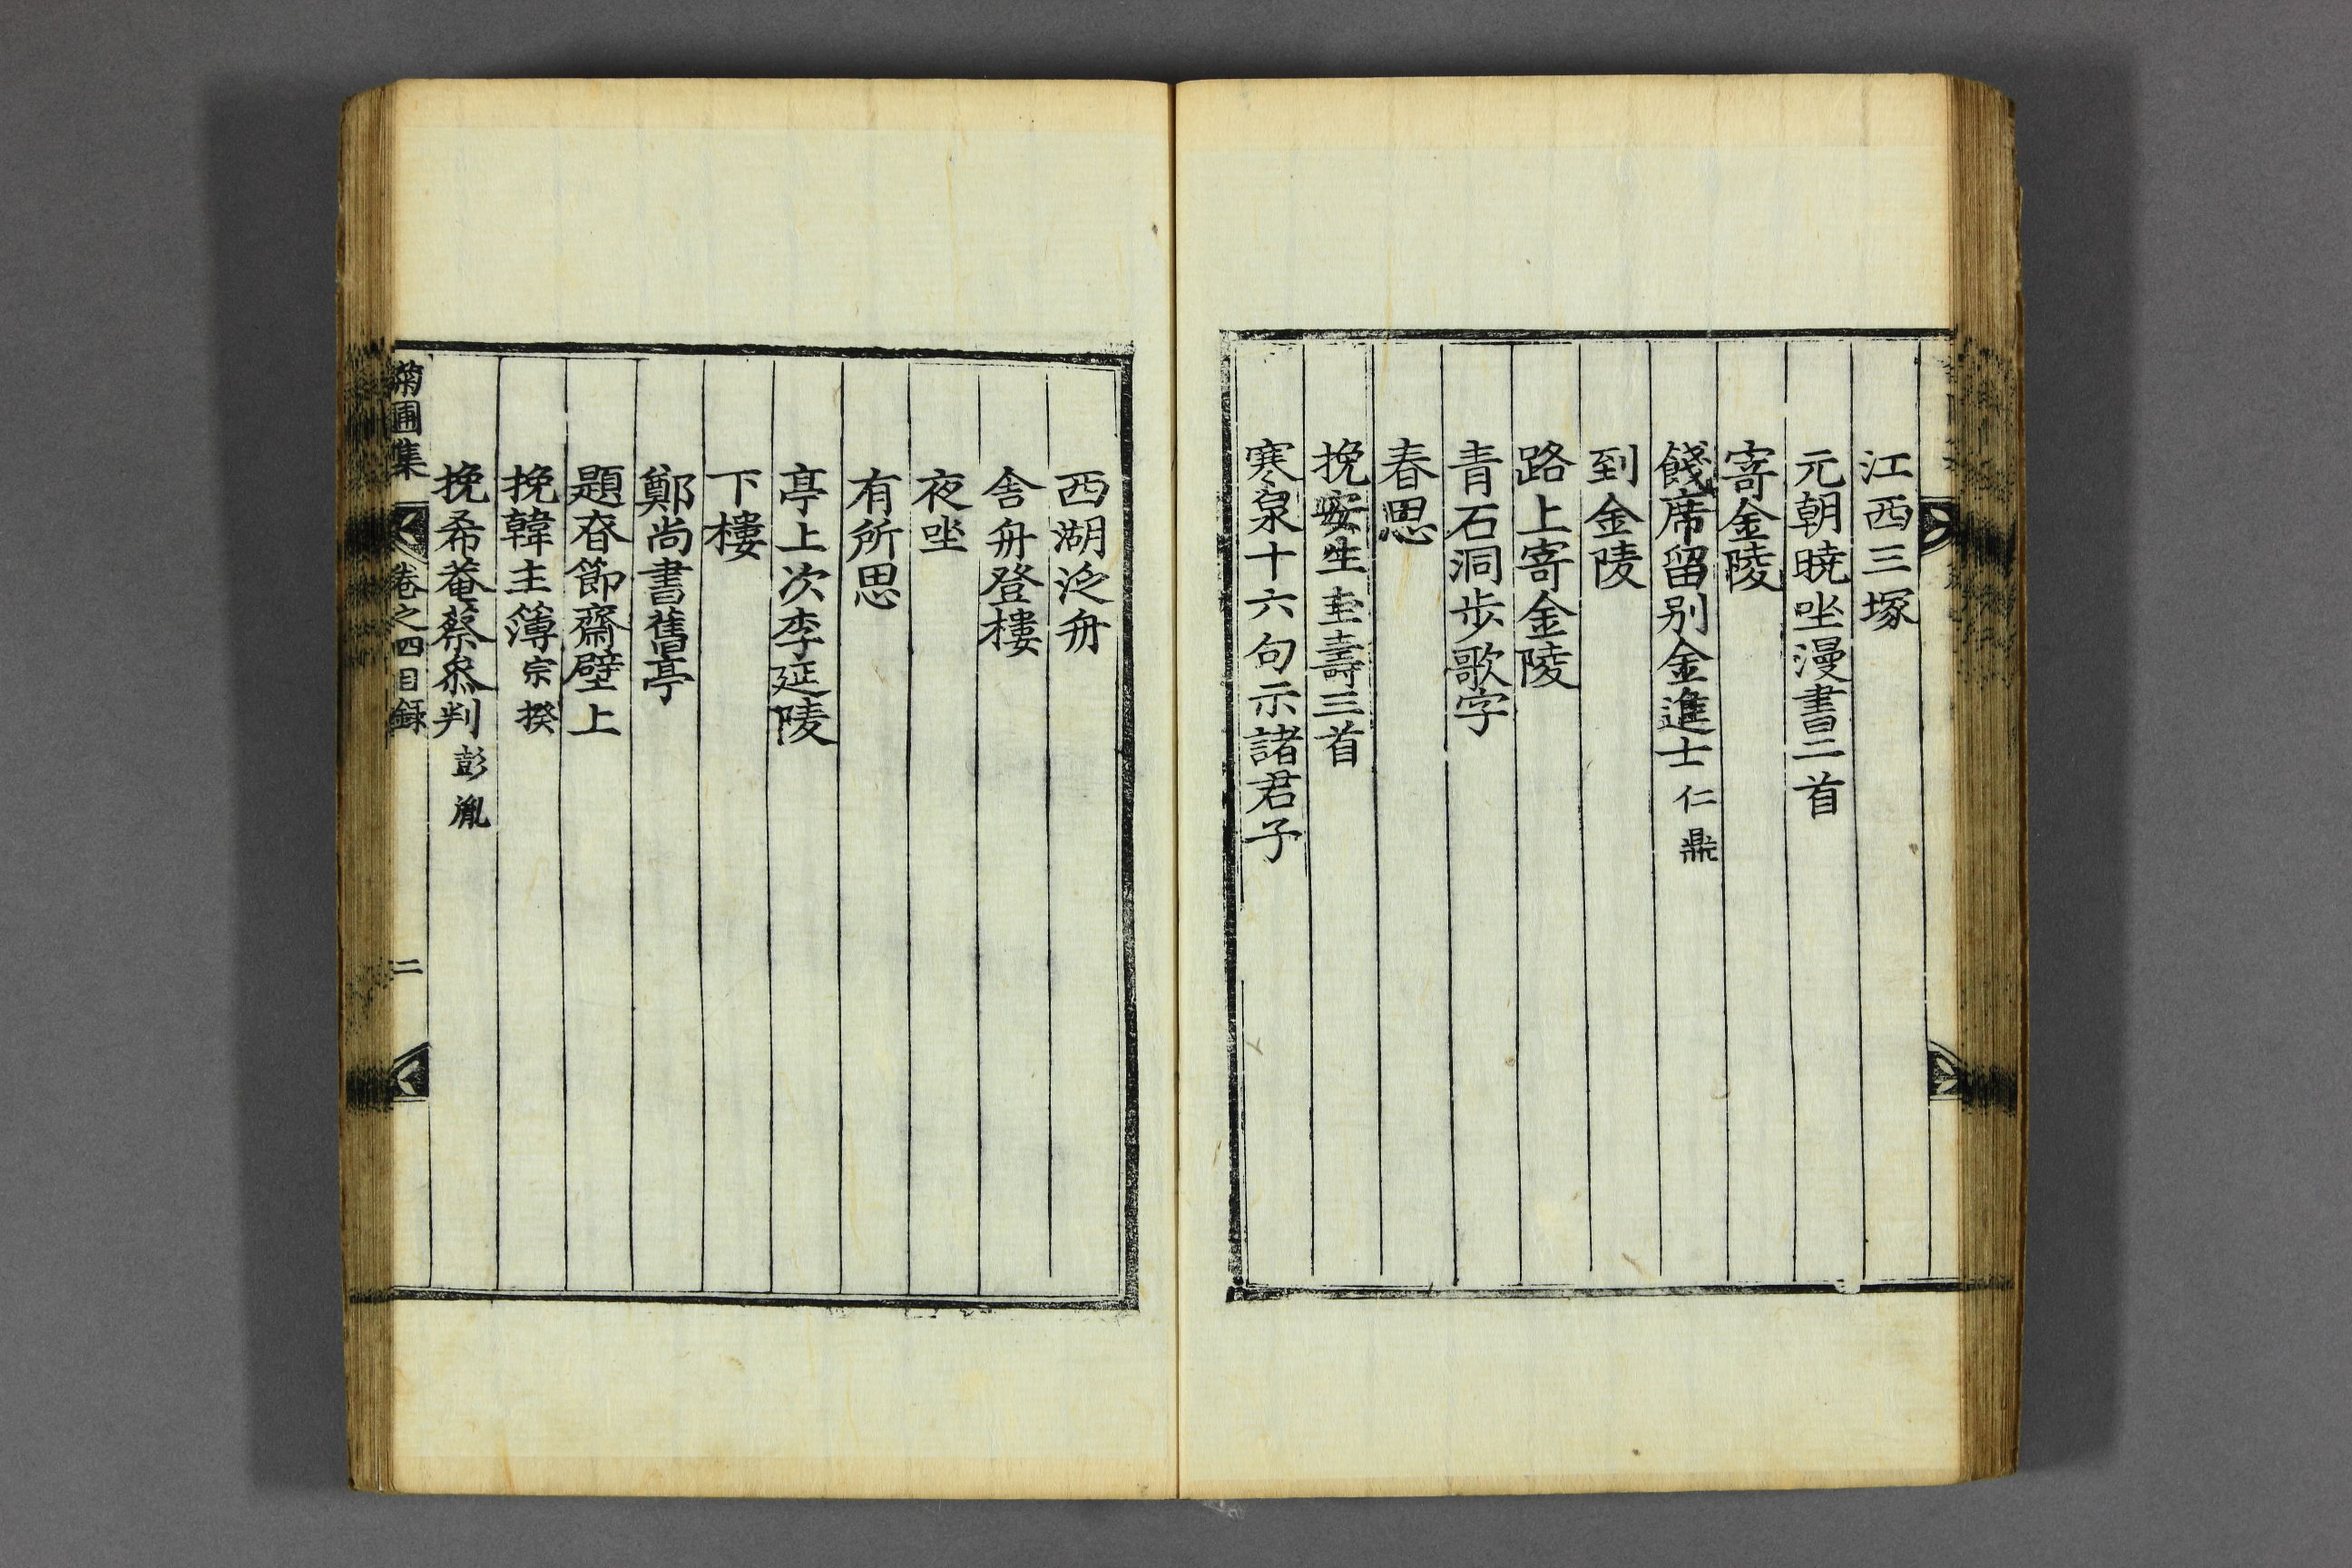 江西三塚
元朝曉坐漫書二首
寄金陵
餞席留别金進士仁鼎
到金陵
路上寄金陵
青石洞步歌字
春思
挽安生圭壽三首
寒泉十六句示諸君子
西湖泛舟
舎舟登樓
夜坐
有所思
亭上次李延陵
下樓
鄭尚書舊亭
題春節齋壁上
挽韓主簿宗揆
挽希菴蔡叅判彭胤
菊圃集 卷之四目録 二